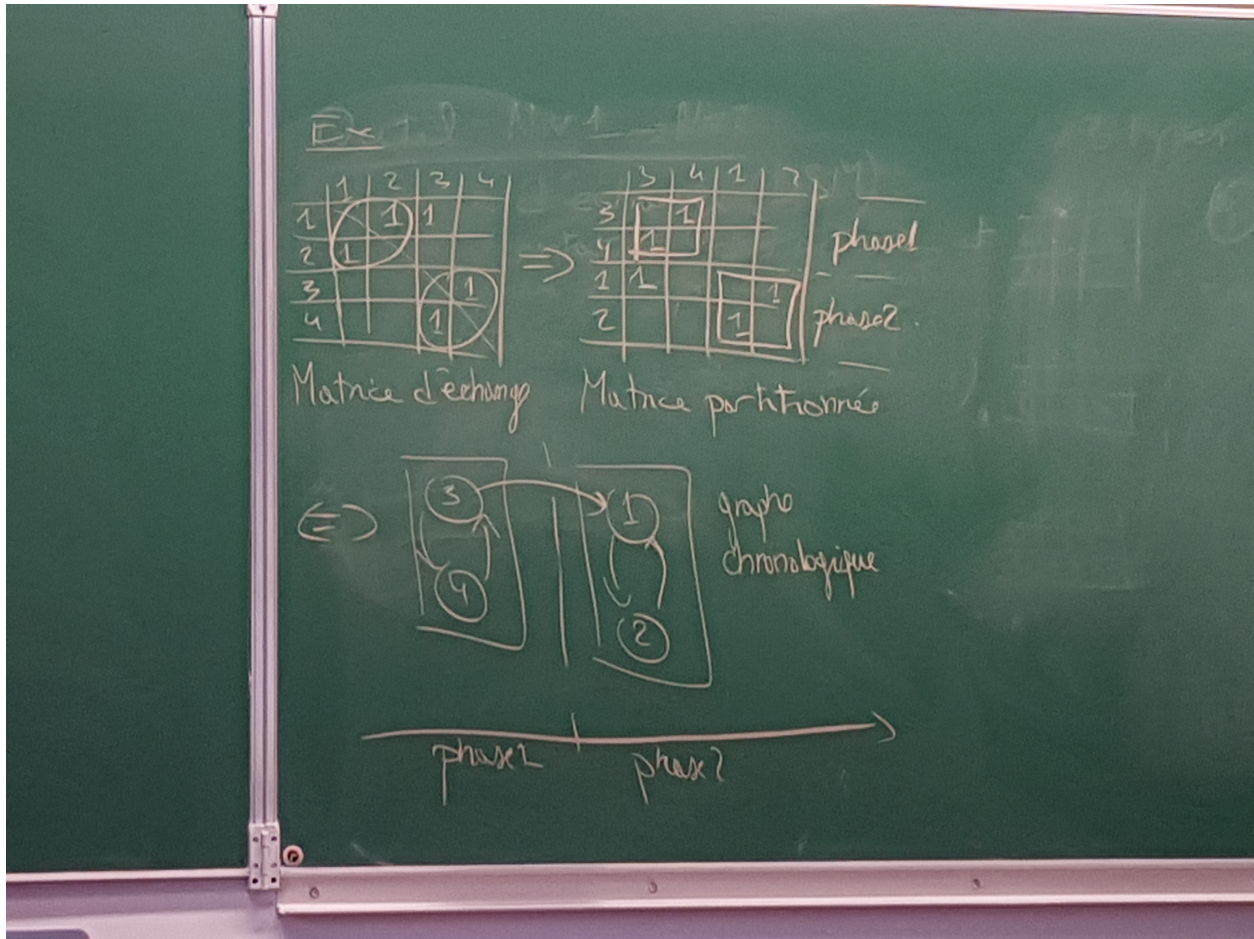 Ex
1 2 3 4
1 1 1
2 1
3 1
4 1
=>
3 4 1 2
3 1
4 1
1 1 1
2 1
phase1
phase2.
Matrice d'échange
Matrice partitionnée
<=>
3 1
4 2
graphe
chronologique
phase1 phase2